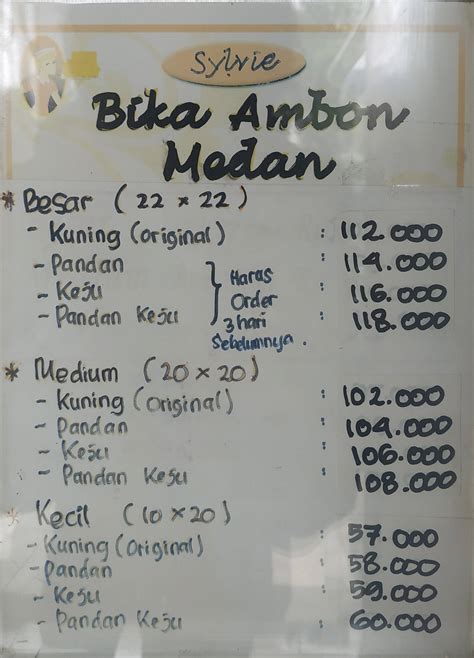 Sylvie
Bika Ambon
Medan
* Besar (22 x 22)
- Kuning (original) : 112.000
- Pandan : 114.000
- Keju : 116.000
- Pandan Keju : 118.000
Harus
Order
3 hari
Sebelumnya.
* Medium (20 x 20)
- Kuning (original) : 102.000
- Pandan : 104.000
- Keju : 106.000
- Pandan Keju : 108.000
* Kecil (10 x 20)
- Kuning (original) : 57.000
- Pandan : 58.000
- Keju : 59.000
- Pandan Keju : 60.000